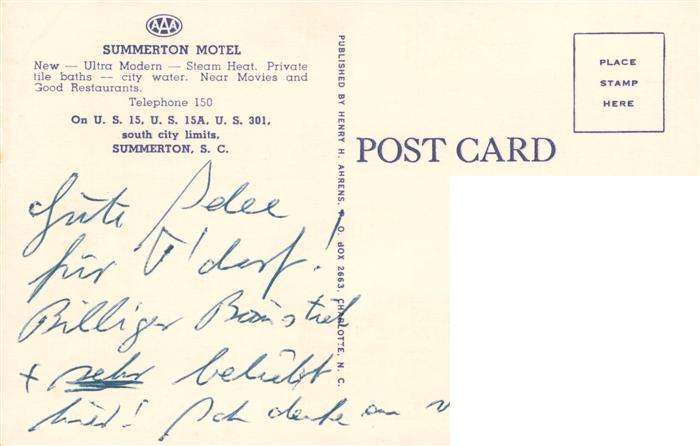 AAA
SUMMERTON MOTEL
New — Ultra Modern — Steam Heat. Private
tile baths -- city water. Near Movies and
Good Restaurants.
Telephone 150
On U. S. 15, U. S. 15A, U. S. 301,
south city limits,
SUMMERTON, S. C.
PUBLISHED BY HENRY H. AHRENS, P. O. BOX 2663, CHARLOTTE, N. C.
PLACE
STAMP
HERE
POST CARD
Gute Idee
für U'dorf!
Billiger
+ sehr beliebt
Ich denke an